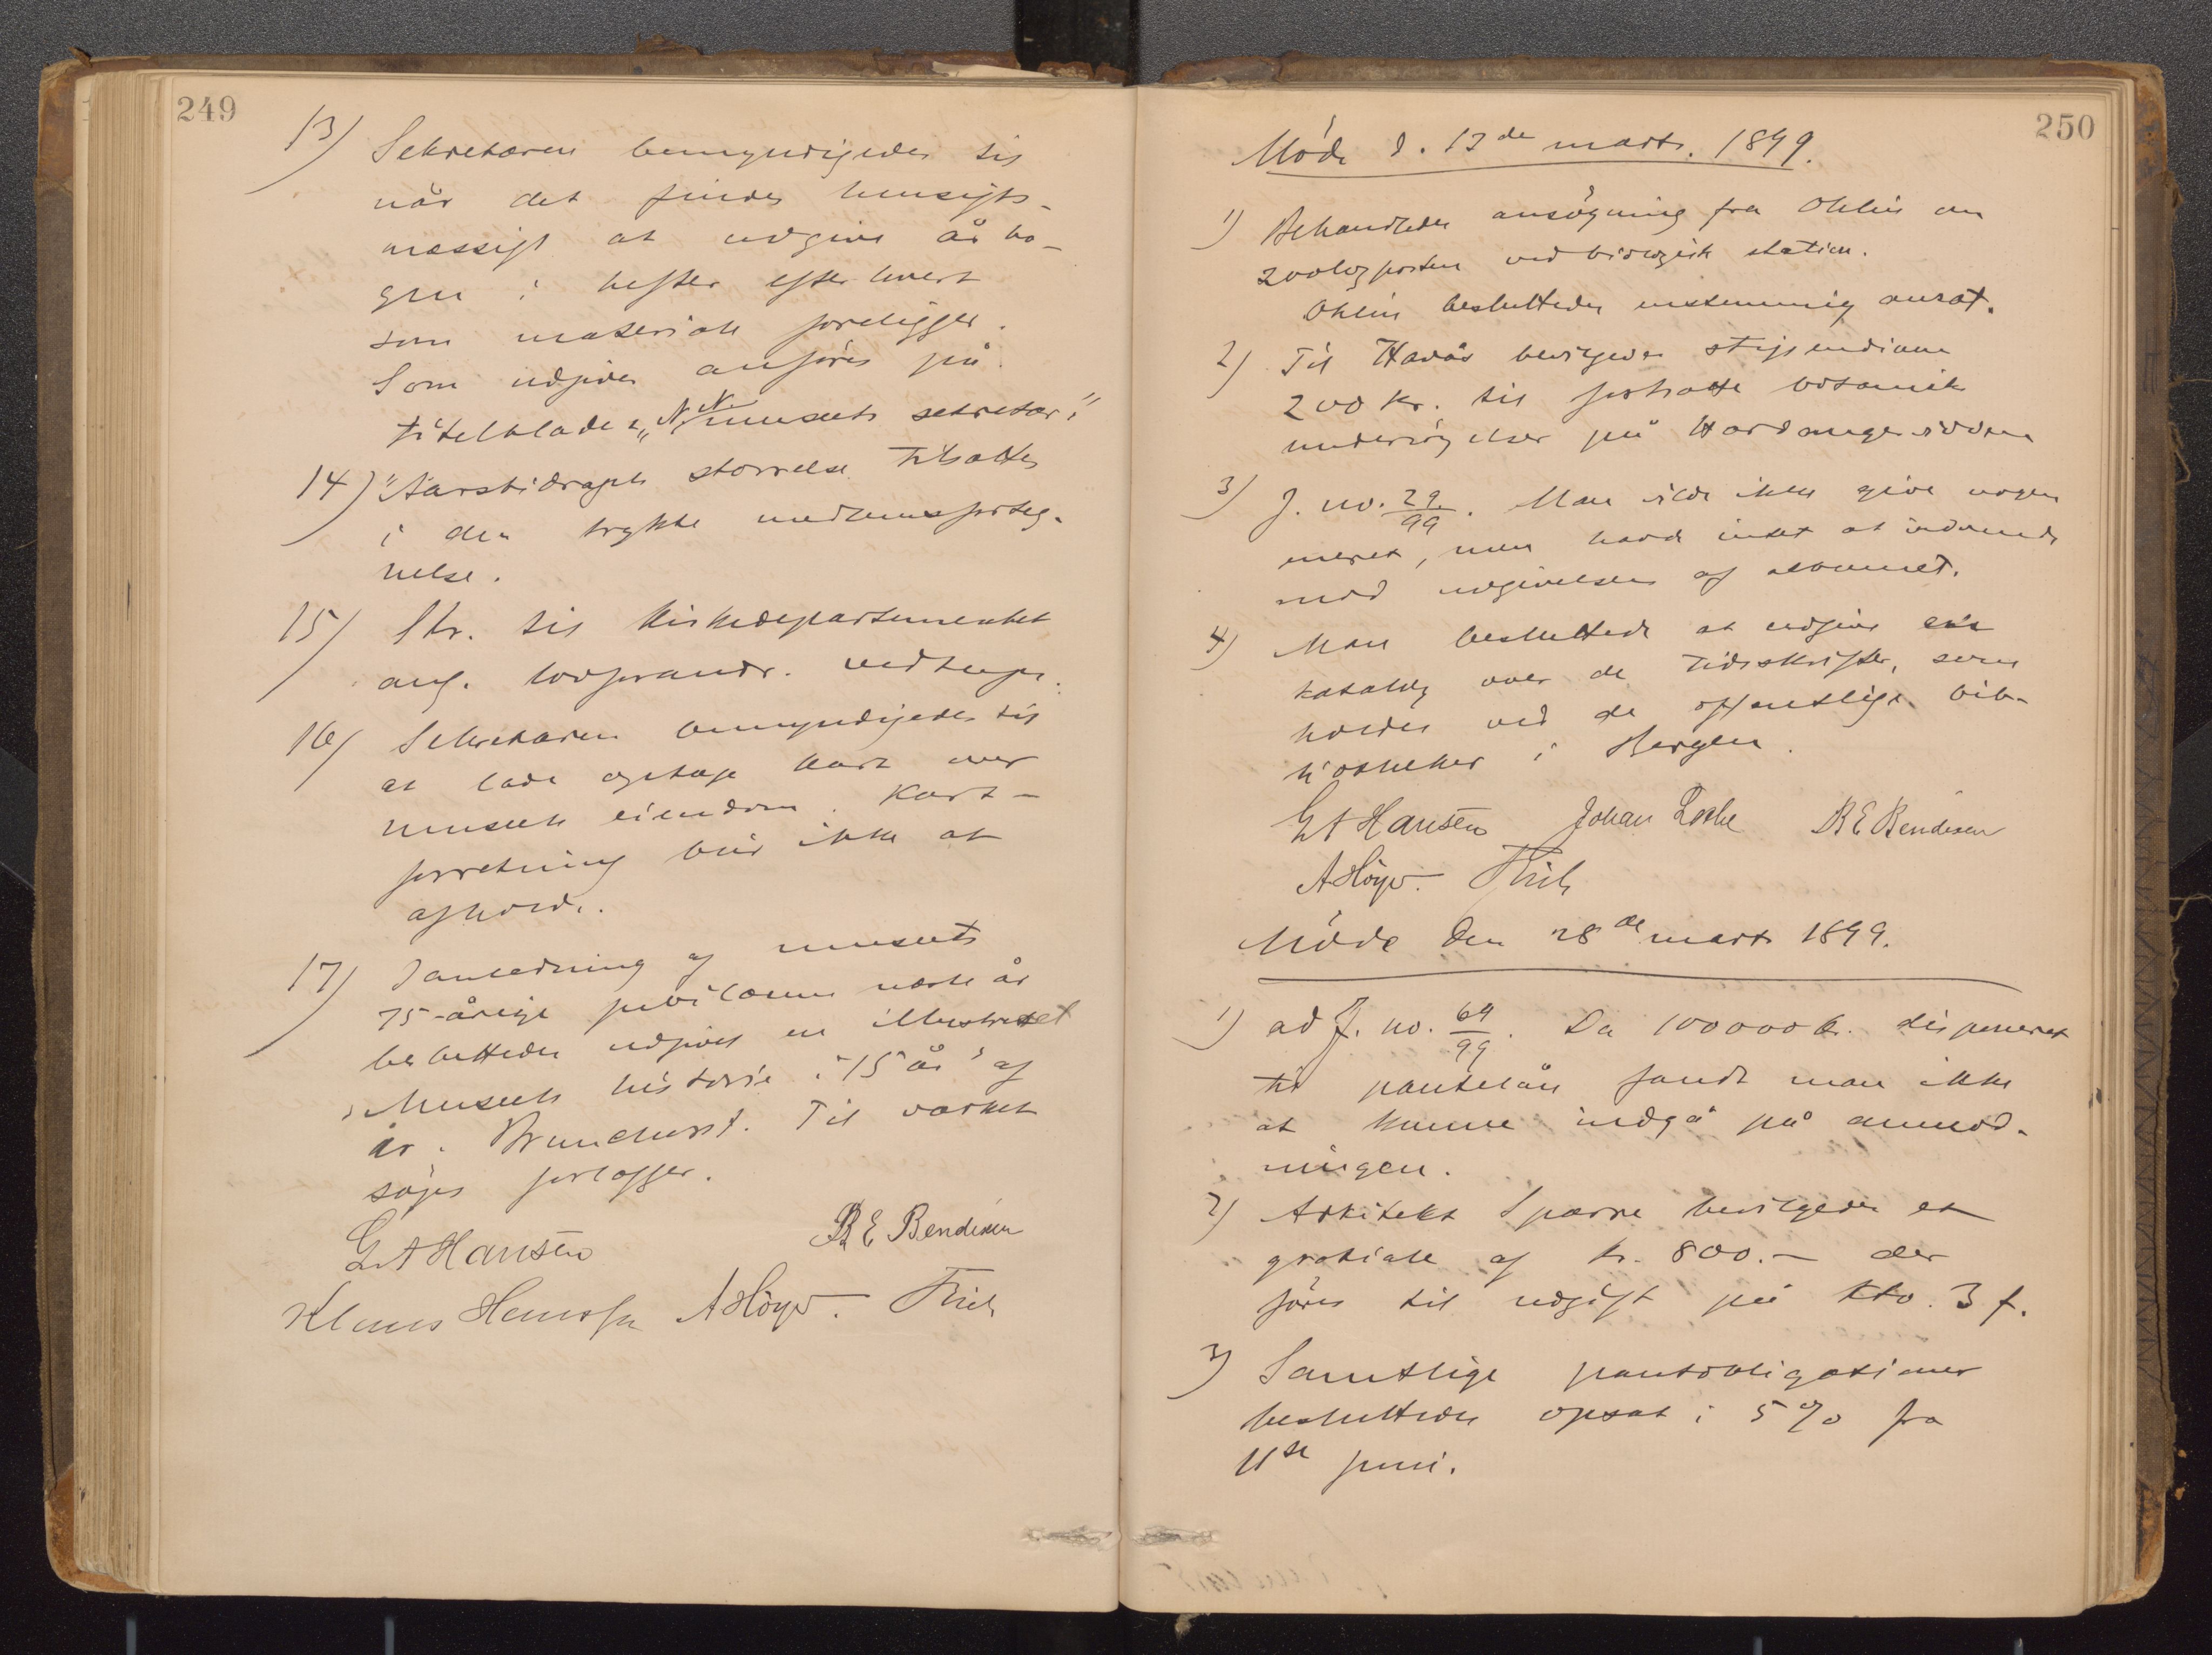 249
13) Sekretæren bemyndigedes til
når det findes hensigts-
mæssigt at udgive årbo-
gen i hefter efterhvert
som materiale foreligger.
Som udgiver anføres på
titelbladet „N. N. museets sekretær."
14) "Aarsbidragets størrelse tilsattes
i den trykte medlemsforteg-
nelse.
15) Skr. til Kirkedepartementet
ang. lovforandr. vedtages.
16) Sekretæren bemyndigedes til
at lade optage kart over
museets eiendom. Kart-
forretning blir ikke at
afholde.
17) I anledning af museets
75-årige jubilæum næste år
besluttedes udgivet en illustreret
"Museets historie i 75 år" af
dr. Brunchorst. Til værket
søges forlægger.
G A Hansen B E Bendixen
Klaus Hanssen A Höyer. Friele
250
Møde d. 13de marts. 1899.
1) Behandledes ansøgning fra Ohlin om
zoologposten ved biologisk station.
Ohlin besluttedes enstemmig ansat.
2) Til Havås bevilgedes stipendium
200 kr. til fortsatte botanik
undersøgelser på Hardangervidden
3) J. no. 29/99. Man vilde ikke give nogen
meret, men havde intet at indvende
mod udgivelsen af albumet.
4) Man besluttede at udgive en
katalog over de tidsskrifter, som
holdes ved de offentlige bib-
liotheker i Bergen.
G A Hansen Johan Lothe B E Bendixen
A Höyer. Friele
Møde den 28de marts 1899.
1) ad J. no. 64/99. Da 100000 kr. disponeret
til pantelån fandt man ikke
at kunne indgå på anmod-
ningen.
2) Arkitekt Sparre bevilgedes et
gratiale af kr. 800.- der
føres til udgift på kto. 3 f.
3) Samtlige pantobligationer
besluttedes opsat i 5% fra
11te juni.